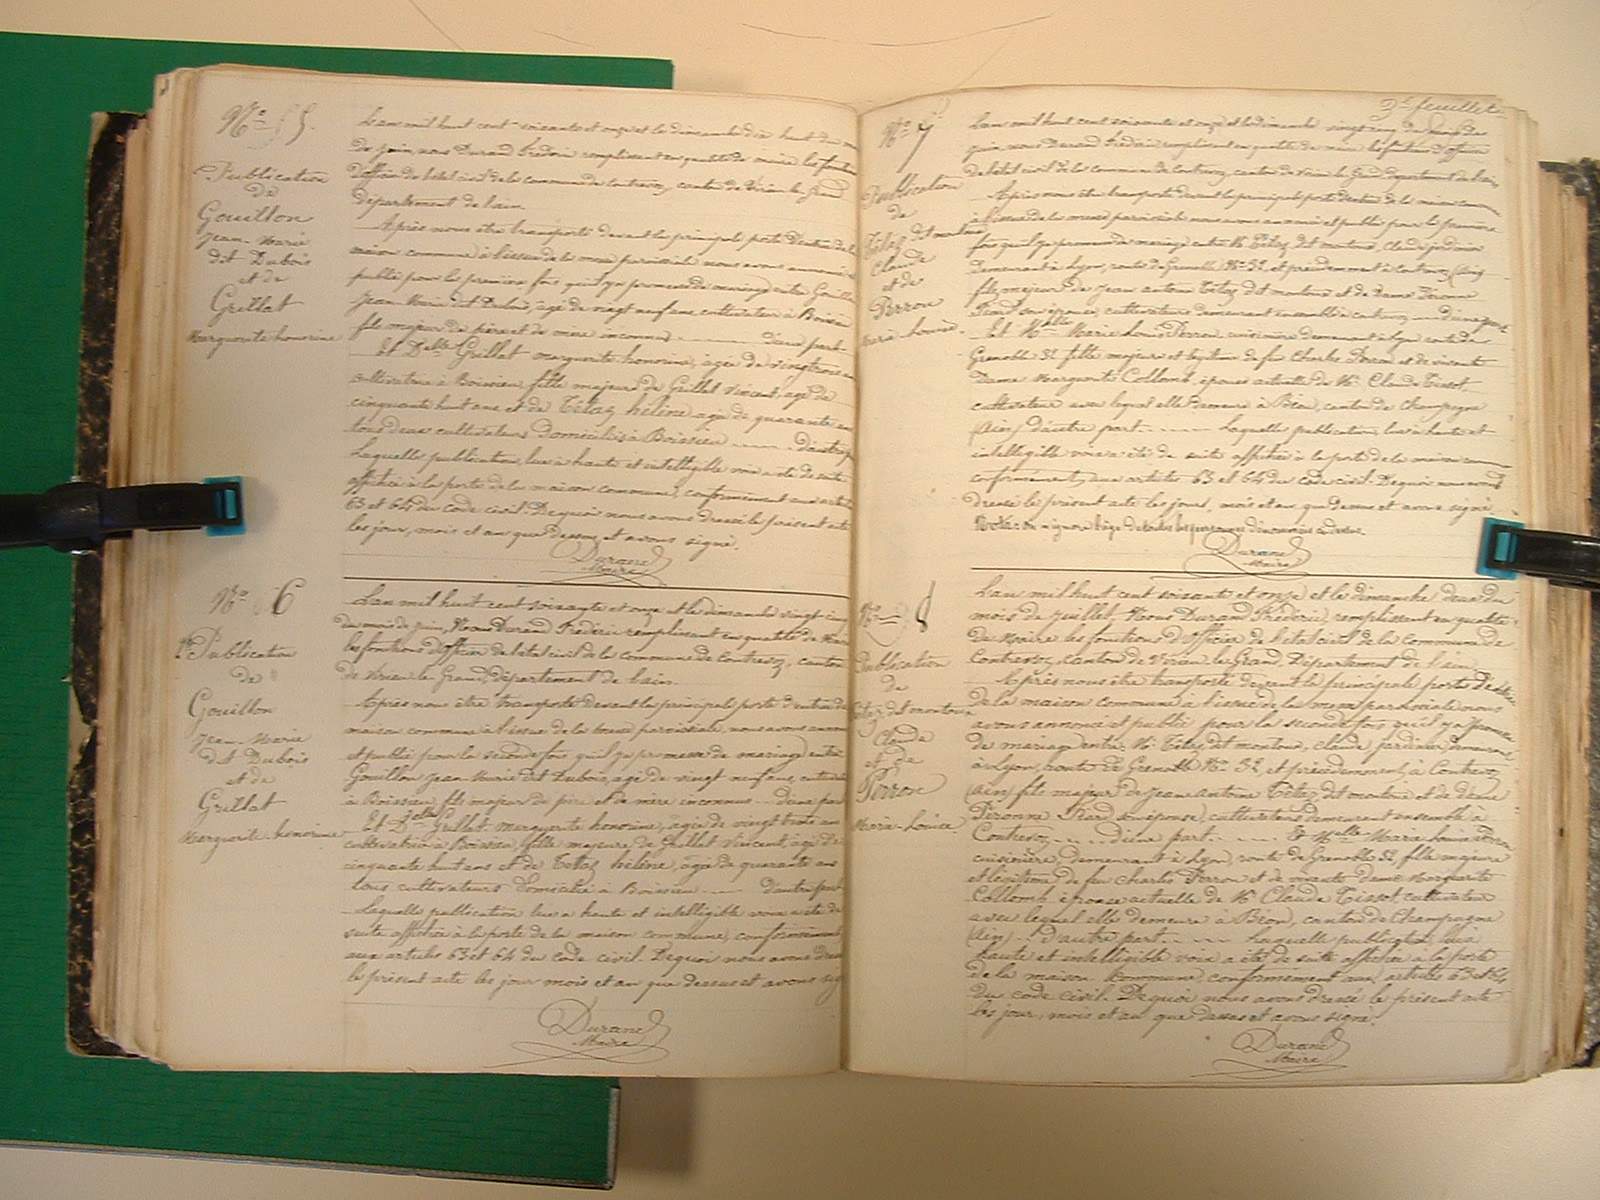 No 5
Publication
de
Gouillon
Jean-Marie
dit Dubois
et de
Grillat
Marguerite honorine
L'an mil huit cent soixante et onze et le dimanche dix huit du mois
de juin, nous Durand Frédéric remplissant en qualité de maire les fonctions
D'officier de l'état civil de la commune de Contrevoz, canton de Virieu le Grand
département de l'ain.
Après nous être transporté devant la principale porte D'entrée de la
maison commune à l'issue de la messe paroissiale nous avons annoncé et
publié pour la première fois qu'il y a promesse de mariage entre Gouillon
Jean-Marie dit Dubois, âgé de vingt neuf ans cultivateur à Boissieu
fils majeur de père et de mère inconnus d'une part
Et Delle Grillat marguerite honorine, âgée de vingt trois ans
cultivatrice à Boissieu, fille majeure de Grillat Vincent, âgé de
cinquante huit ans et de Tétaz hélène âgée de quarante ans
tous deux cultivateurs Domiciliés à Boissieu d'autre part
Laquelle publication, lue à haute et intelligible voix a été de suite
affichée à la porte de la maison commune, conformément aux articles
63 et 64 du Code civil. De quoi nous avons dressé le présent acte
les jour, mois et an que Dessus et avons signé.
Durand
Maire
No 6
2e Publication
de
Gouillon
Jean-Marie
dit Dubois
et de
Grillat
Marguerite-honorine
L'an mil huit cent soixante et onze et le dimanche vingt cinq
du mois de juin, Nous Durand Frédéric remplissant en qualité de Maire
les fonctions d'officier de l'état civil de la commune de Contrevoz, canton
de Virieu le Grand, département de l'ain.
Après nous être transporté devant la principale porte d'entrée de la
maison commune à l'issue de la messe paroissiale, nous avons annoncé
et publié pour la seconde fois qu'il y a promesse de mariage entre
Gouillon Jean-Marie dit Dubois, âgé de vingt neuf ans, cultivateur
à Boissieu, fils majeur de père et de mère inconnus d'une part
Et Delle Grillat marguerite honorine, âgée de vingt trois ans
cultivatrice à Boissieu, fille majeure de Grillat Vincent, âgé de
cinquante huit ans et de Tétaz hélène, âgée de quarante ans
tous cultivateurs Domiciliés à Boissieu d'autre part
Laquelle publication lue à haute et intelligible voix a été de
suite affichée à la porte de la maison commune, conformément
aux articles 63 et 64 du Code civil. De quoi nous avons dressé
le présent acte les jour mois et an que dessus et avons signé
Durand
Maire
9e feuillet
No 7
Publication
de
Tétaz dit montoux
Claude
et de
Perron
Marie-Louise.
L'an mil huit cent soixante et onze et le dimanche vingt cinq du mois de
juin, nous Durand Frédéric remplissant en qualité de maire les fonctions d'officier
de l'état civil de la commune de Contrevoz, canton de Virieu le Grand département de l'ain,
Après nous être transporté devant la principale porte d'entrée de la maison commune
à l'issue de la messe paroissiale nous avons annoncé et publié pour la première
fois qu'il y a promesse de mariage entre Mr Tétaz dit montoux, Claude jardinier
Demeurant à Lyon, route de Grenoble No 32, et précédemment à Contrevoz (Ain)
fils majeur de Jean antoine Tétaz dit montoux et de Dame Peronne
Piard son épouse, cultivateurs demeurant ensemble à Contrevoz d'une part
Et Melle Marie Louise Perron, cuisinière demeurant à Lyon route de
Grenoble 32 fille majeure et légitime de feu Charles Perron et de vivante
Dame Marguerite Collomb, épouse actuelle de Mr Claude Tissot
cultivateur avec lequel elle Demeure à Béon, canton de Champagne
(Ain) d'autre part. Laquelle publication, lue à haute et
intelligible voix a été de suite affichée à la porte de la maison commune
conformément aux articles 63 et 64 du code civil. De quoi nous avons
dressé le présent acte les jours, mois et an que dessus et avons signé
Nota: on ignore l'âge de toutes les personnes dénommées ci-dessus.
Durand
Maire
No 8
Publication
de
Tétaz dit montoux
Claude
et de
Perron
Marie-Louise
L'an mil huit cent soixante et onze et le dimanche deux du
mois de Juillet, Nous Durand Frédéric, remplissant en qualité
de Maire les fonctions d'officier de l'état civil de la Commune de
Contrevoz, canton de Virieu le Grand, Département de l'ain
Après nous être transporté devant la principale porte d'entrée
de la maison commune à l'issue de la messe paroissiale nous
avons annoncé et publié pour la seconde fois qu'il y a promesse
de mariage entre Mr Tétaz dit montoux, Claude jardinier demeurant
à Lyon, route de Grenoble No 32, et précédemment à Contrevoz
(Ain) fils majeur de Jean Antoine Tétaz dit montoux et de dame
Peronne Piard son épouse, cultivateurs demeurant ensemble à
Contrevoz d'une part. Et Melle Marie Louise Perron
cuisinière, demeurant à Lyon, route de Grenoble 32, fille majeure
et légitime de feu Charles Perron et de vivante Dame Marguerite
Collomb, épouse actuelle de Mr Claude Tissot, cultivateur
avec lequel elle demeure à Béon, canton de Champagne
(Ain) d'autre part. Laquelle publication, lue à
haute et intelligible voix a été de suite affichée à la porte
de la maison commune, conformément aux articles 63 et 64
du code civil. De quoi nous avons dressé le présent acte
les jour, mois et an que dessus et avons signé.
Durand
Maire